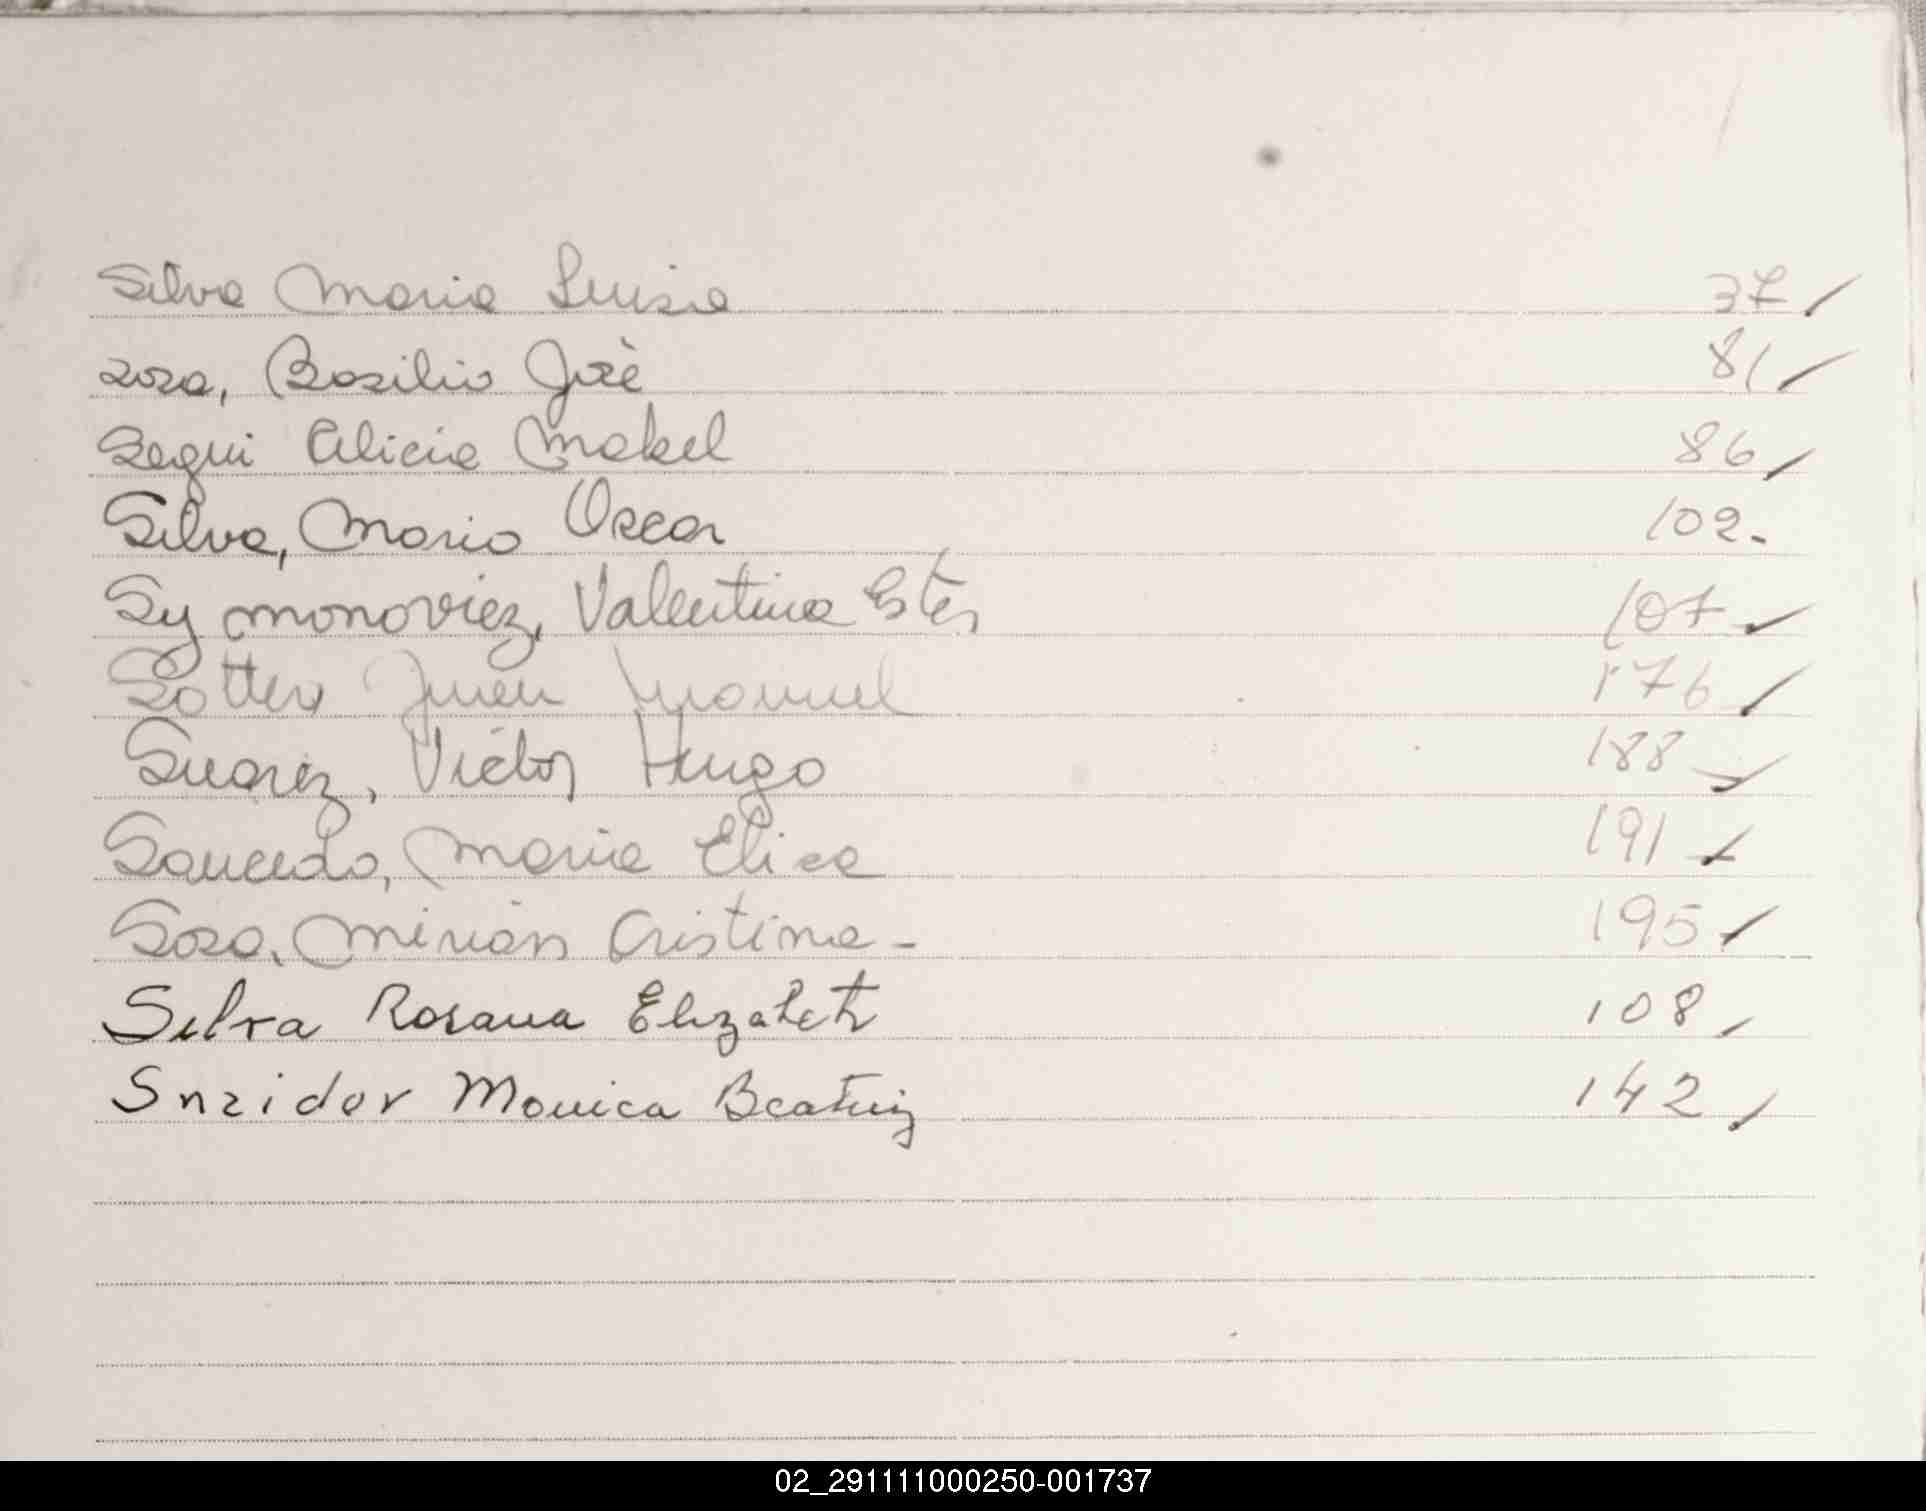 Silva Maria Luisa 37
sosa, Basilio José 81
Segui Alicia Mabel 86
Silva, Mario Oscar 102.
Symonoviez, Valentina Ester 107
Sotter Juan Manuel 176
Suarez, Victor Hugo 188
Saucedo, Maria Elisa 191
Sosa, Mirian Cristina - 195
Silva Rosana Elizabeth 108
Snaidor Monica Beatriz 142
02_291111000250-001737